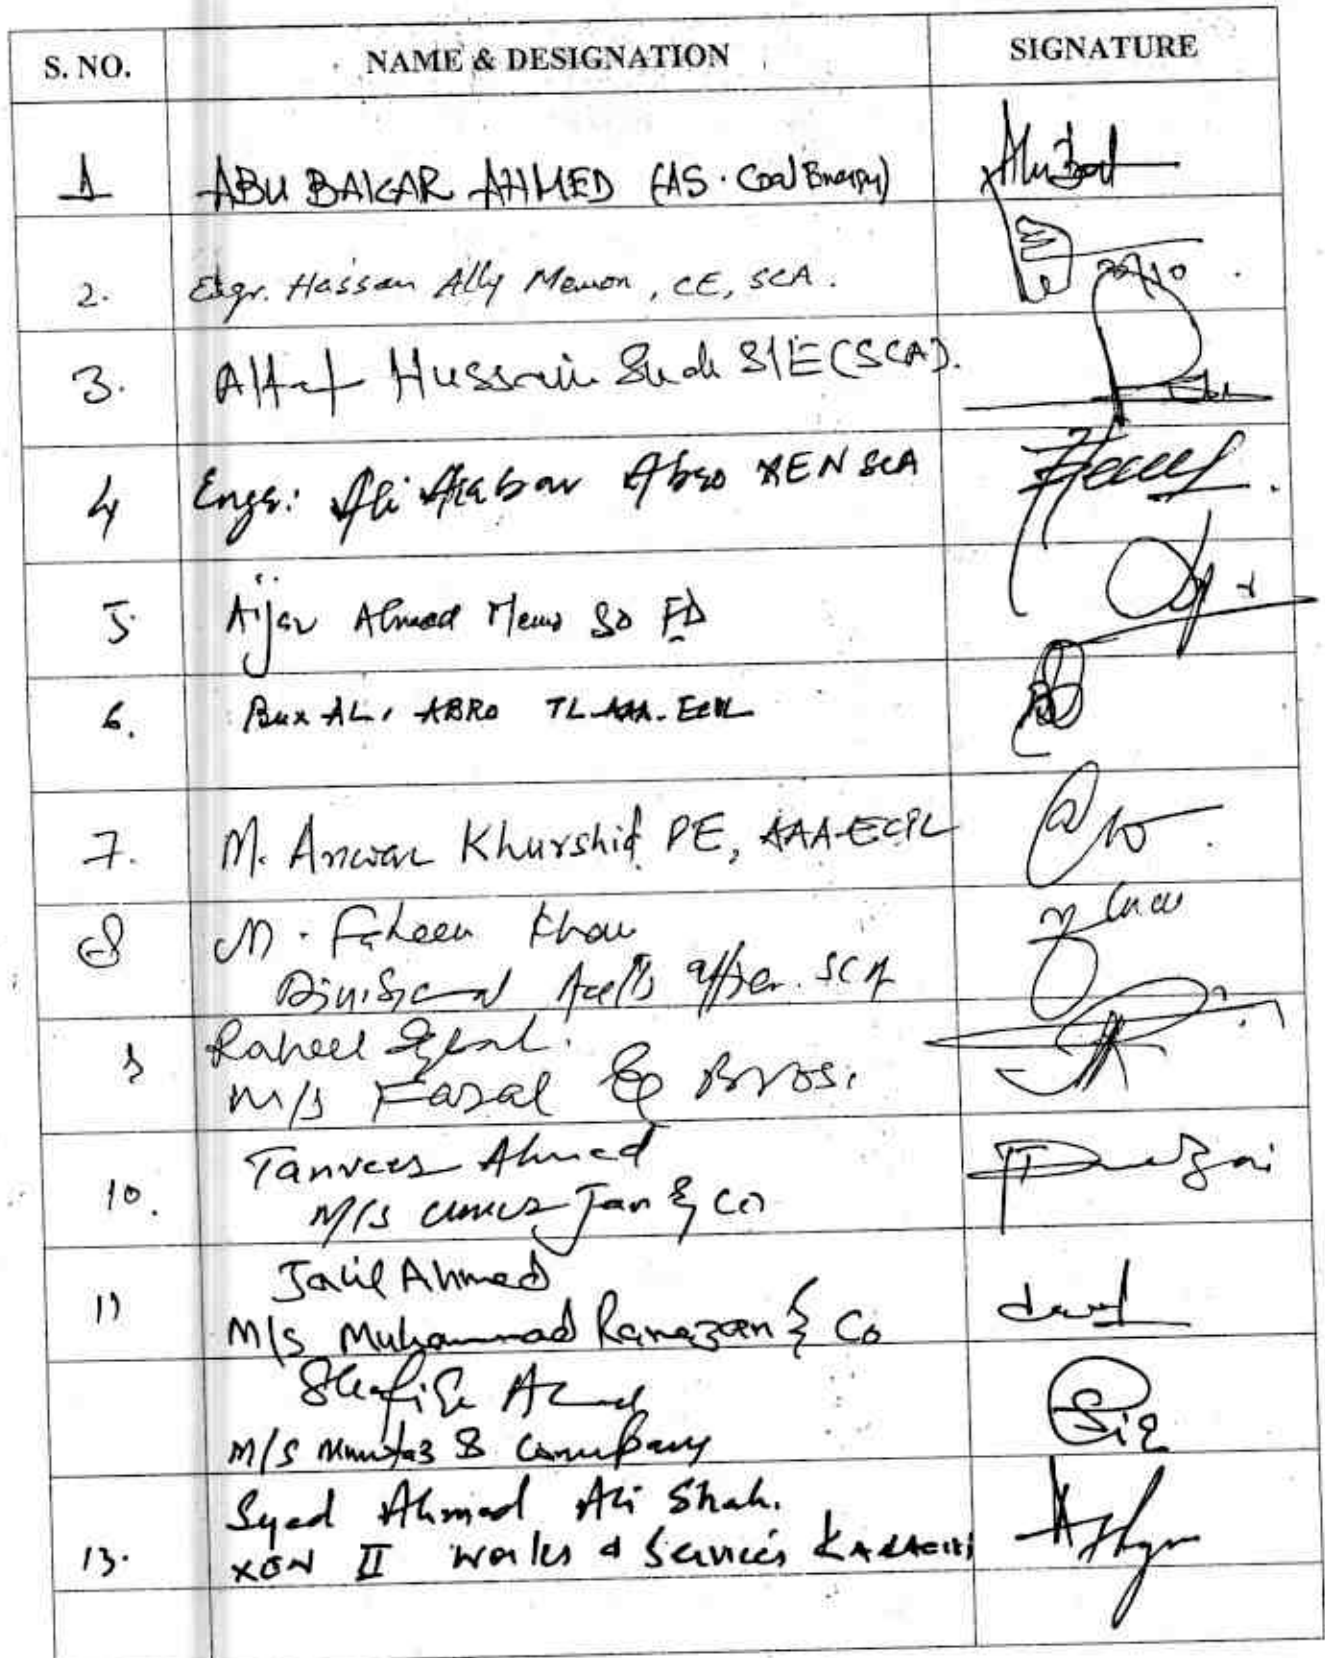 S. NO. NAME & DESIGNATION SIGNATURE
1 ABU BAKAR AHMED (AS. Coal Energy)
2. Engr. Hassan Ally Memon, CE, SCA.
3. Altaf Hussain S/E (SCA).
4 Engr: Ali Akbar Abro XEN SCA
5. Aijaz Ahmed Memo SO FD
6. Bux ALi ABRO TL AAA-ECIL
7. M. Anwar Khurshid PE, AAA-ECIL
8 M. Faheem Khan
Divisional Acctts officer. SCA
9 Raheel
M/s Fazal & Bros.
10. Tanveer Ahmed
M/S Umer Jan & Co
11 Jalil Ahmed
M/S Muhammad Ramazan & Co
Shafiq Ahmed
M/S Mumtaz & Company
Syed Ahmed Ali Shah.
13. XEN II works & Services KARACHI